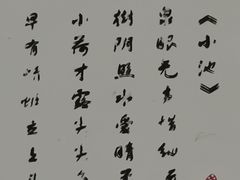 《小池》
泉眼无声惜细流
树阴照水爱晴柔
小荷才露尖尖
早有蜻蜓立上头